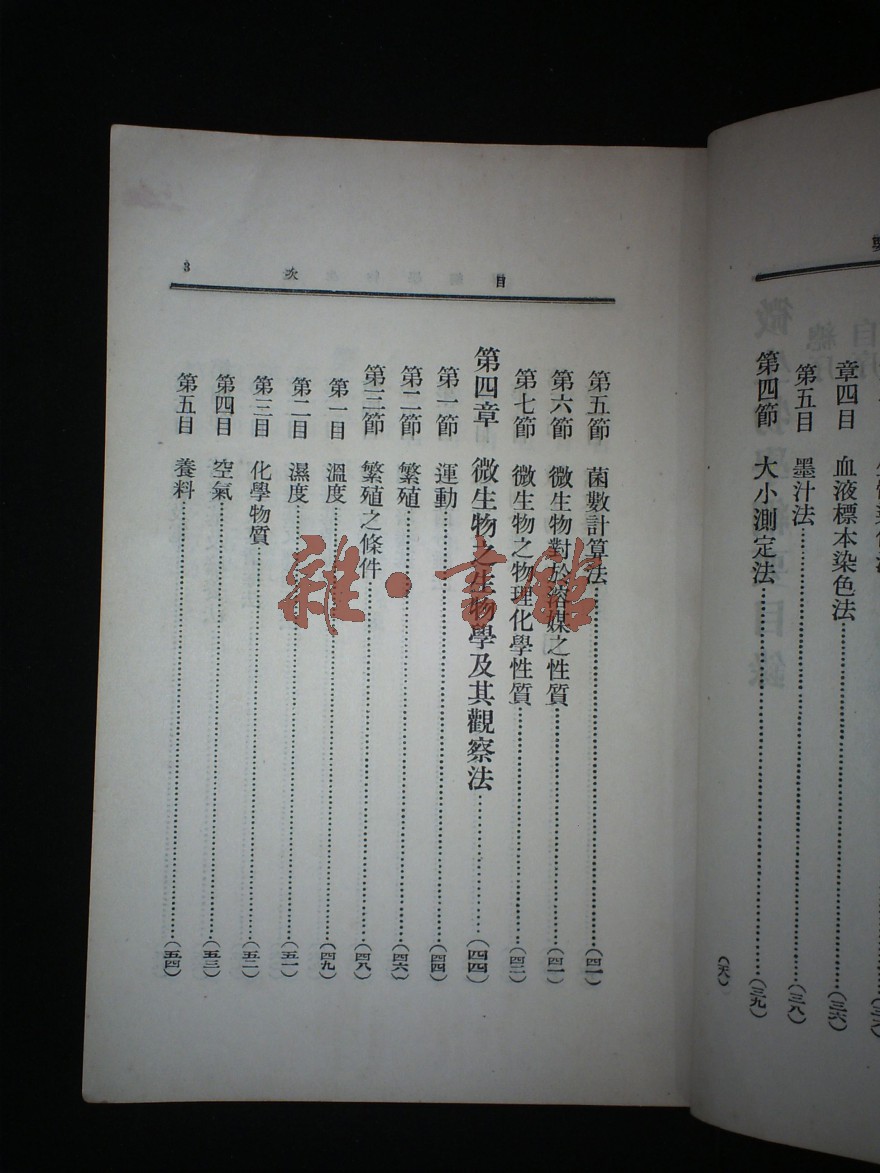 章四目　血液標本染色法……(三六)
第五目　墨汁法……(三八)
第四節　大小測定法……(三九)
目次 3
第五節　菌數計算法……(四一)
第六節　微生物對於溶媒之性質……(四一)
第七節　微生物之物理化學性質……(四二)
第四章　微生物之生物學及其觀察法……(四四)
第一節　運動……(四四)
第二節　繁殖……(四六)
第三節　繁殖之條件……(四八)
第一目　溫度……(四九)
第二目　濕度……(五一)
第三目　化學物質……(五二)
第四目　空氣……(五三)
第五目　養料……(五四)
雜·書館